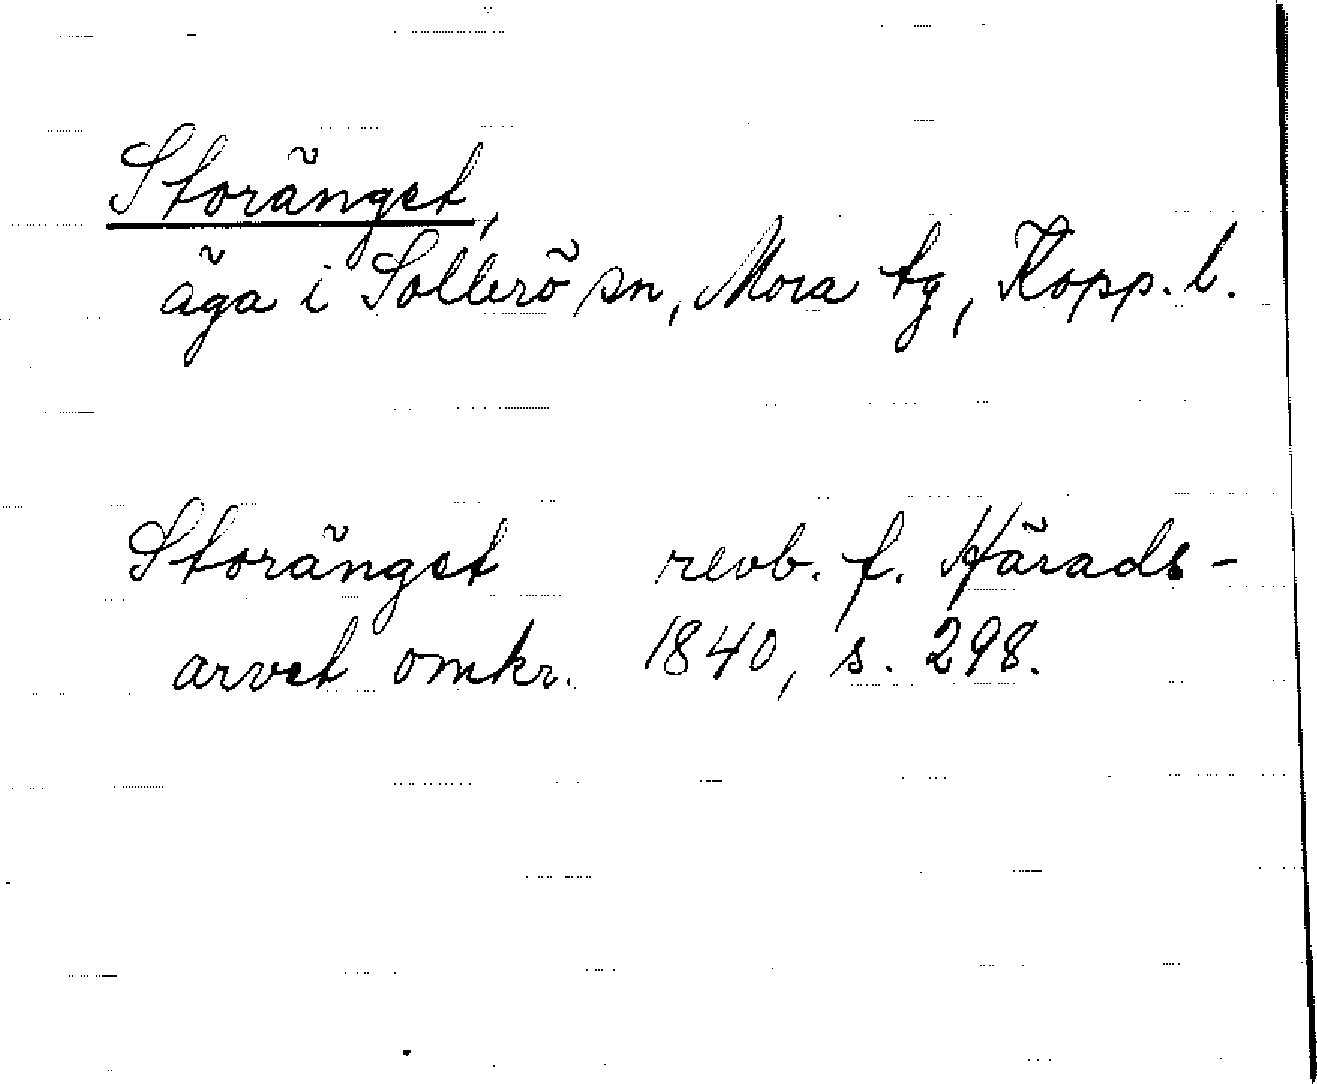 Storänget,
äga i Sollerö sn, Mora tg, Kopp. l.
Storänget revb. f. Härads-
arvet omkr. 1840, s. 298.